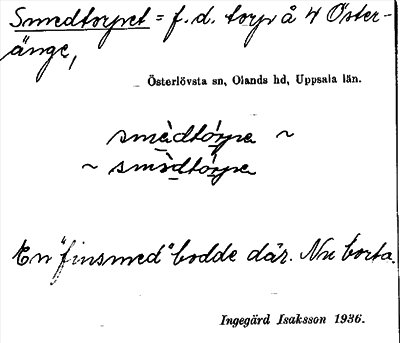 Smedtorpet = f. d. torp å 4 Öster-
änge,
Österlövsta sn, Olands hd, Uppsala län.
smèdtórpa ~
~ smìdtórpa
En "finsmed" bodde där. Nu borta.
Ingegärd Isaksson 1936.